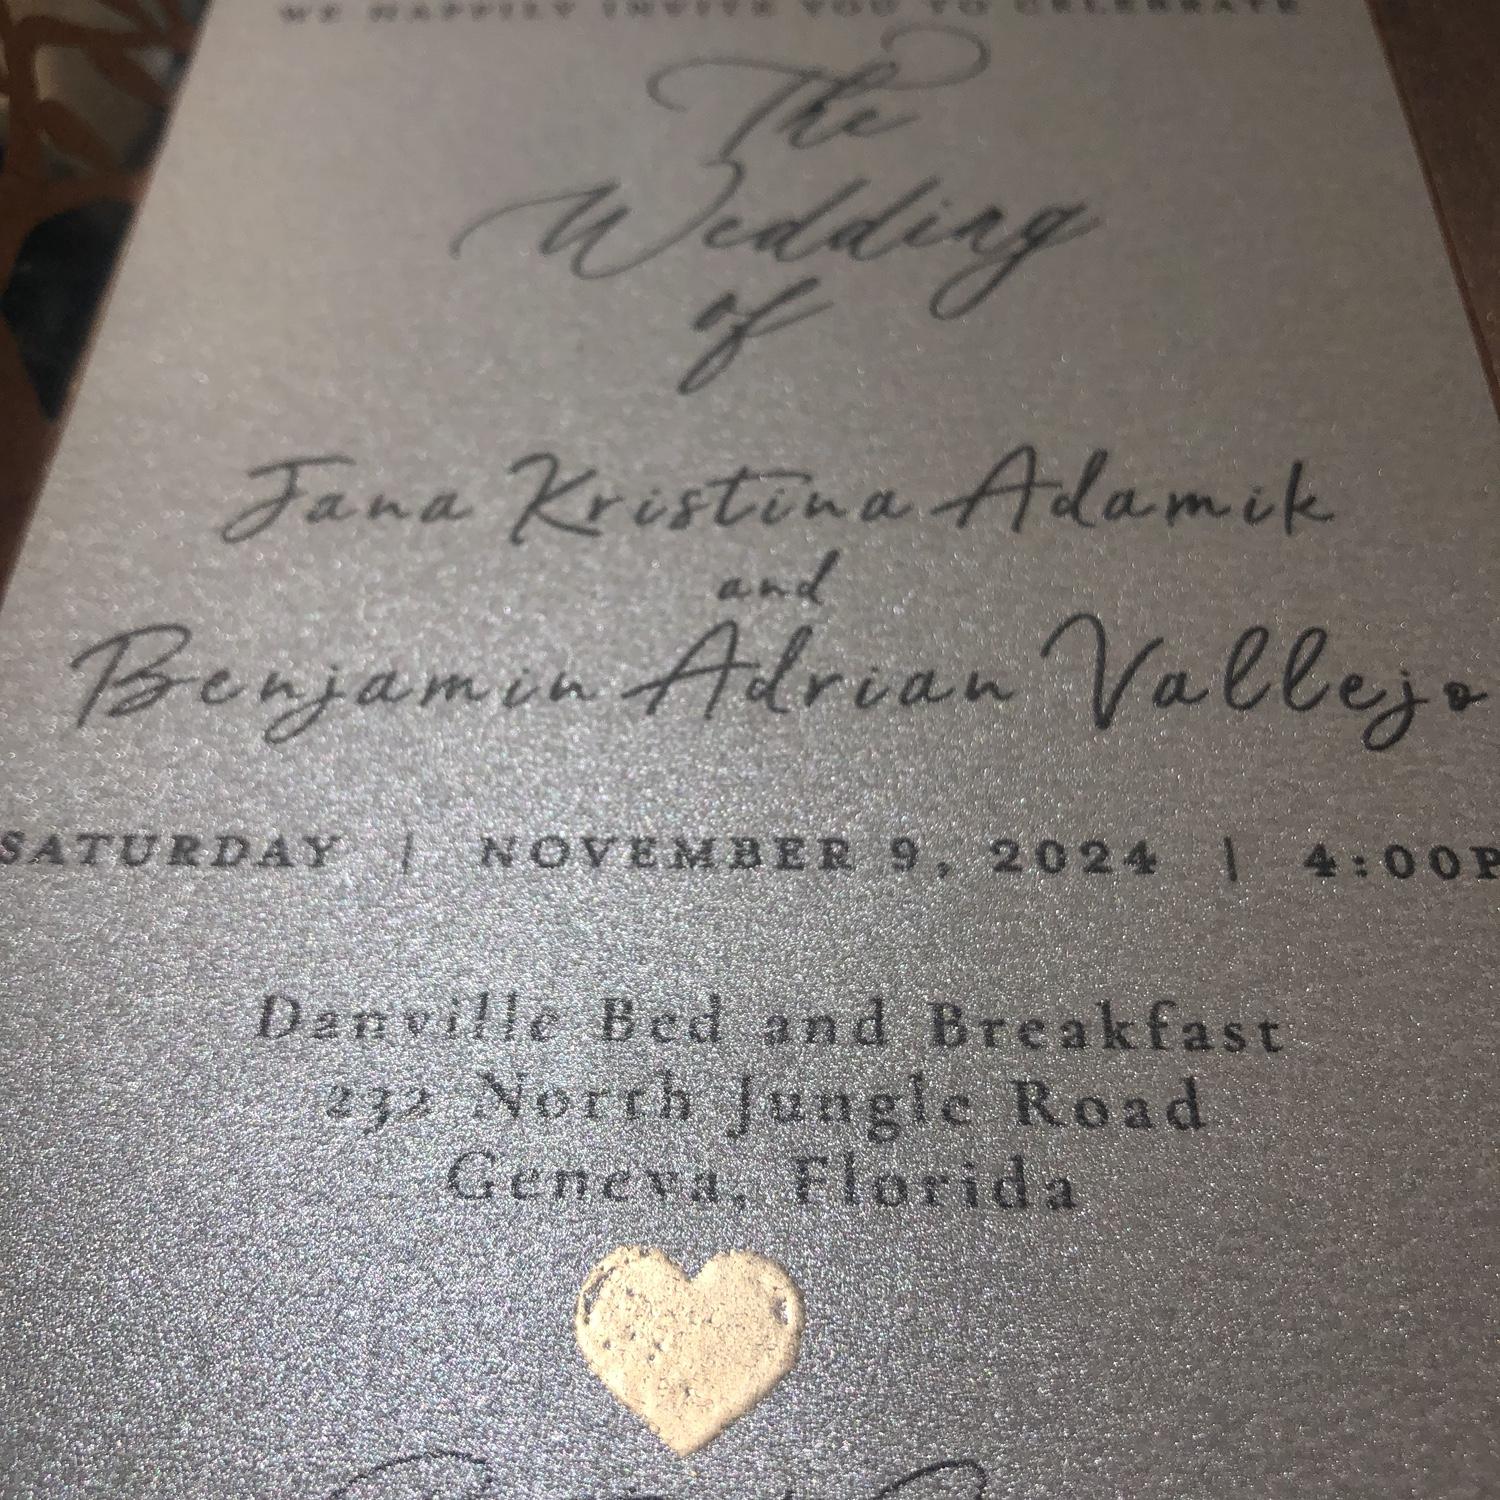 WE HAPPILY INVITE YOU TO CELEBRATE
The
Wedding
of
Jana Kristina Adamik
and
Benjamin Adrian Vallejo
SATURDAY | NOVEMBER 9, 2024 | 4:00P
Danville Bed and Breakfast
232 North Jungle Road
Geneva, Florida